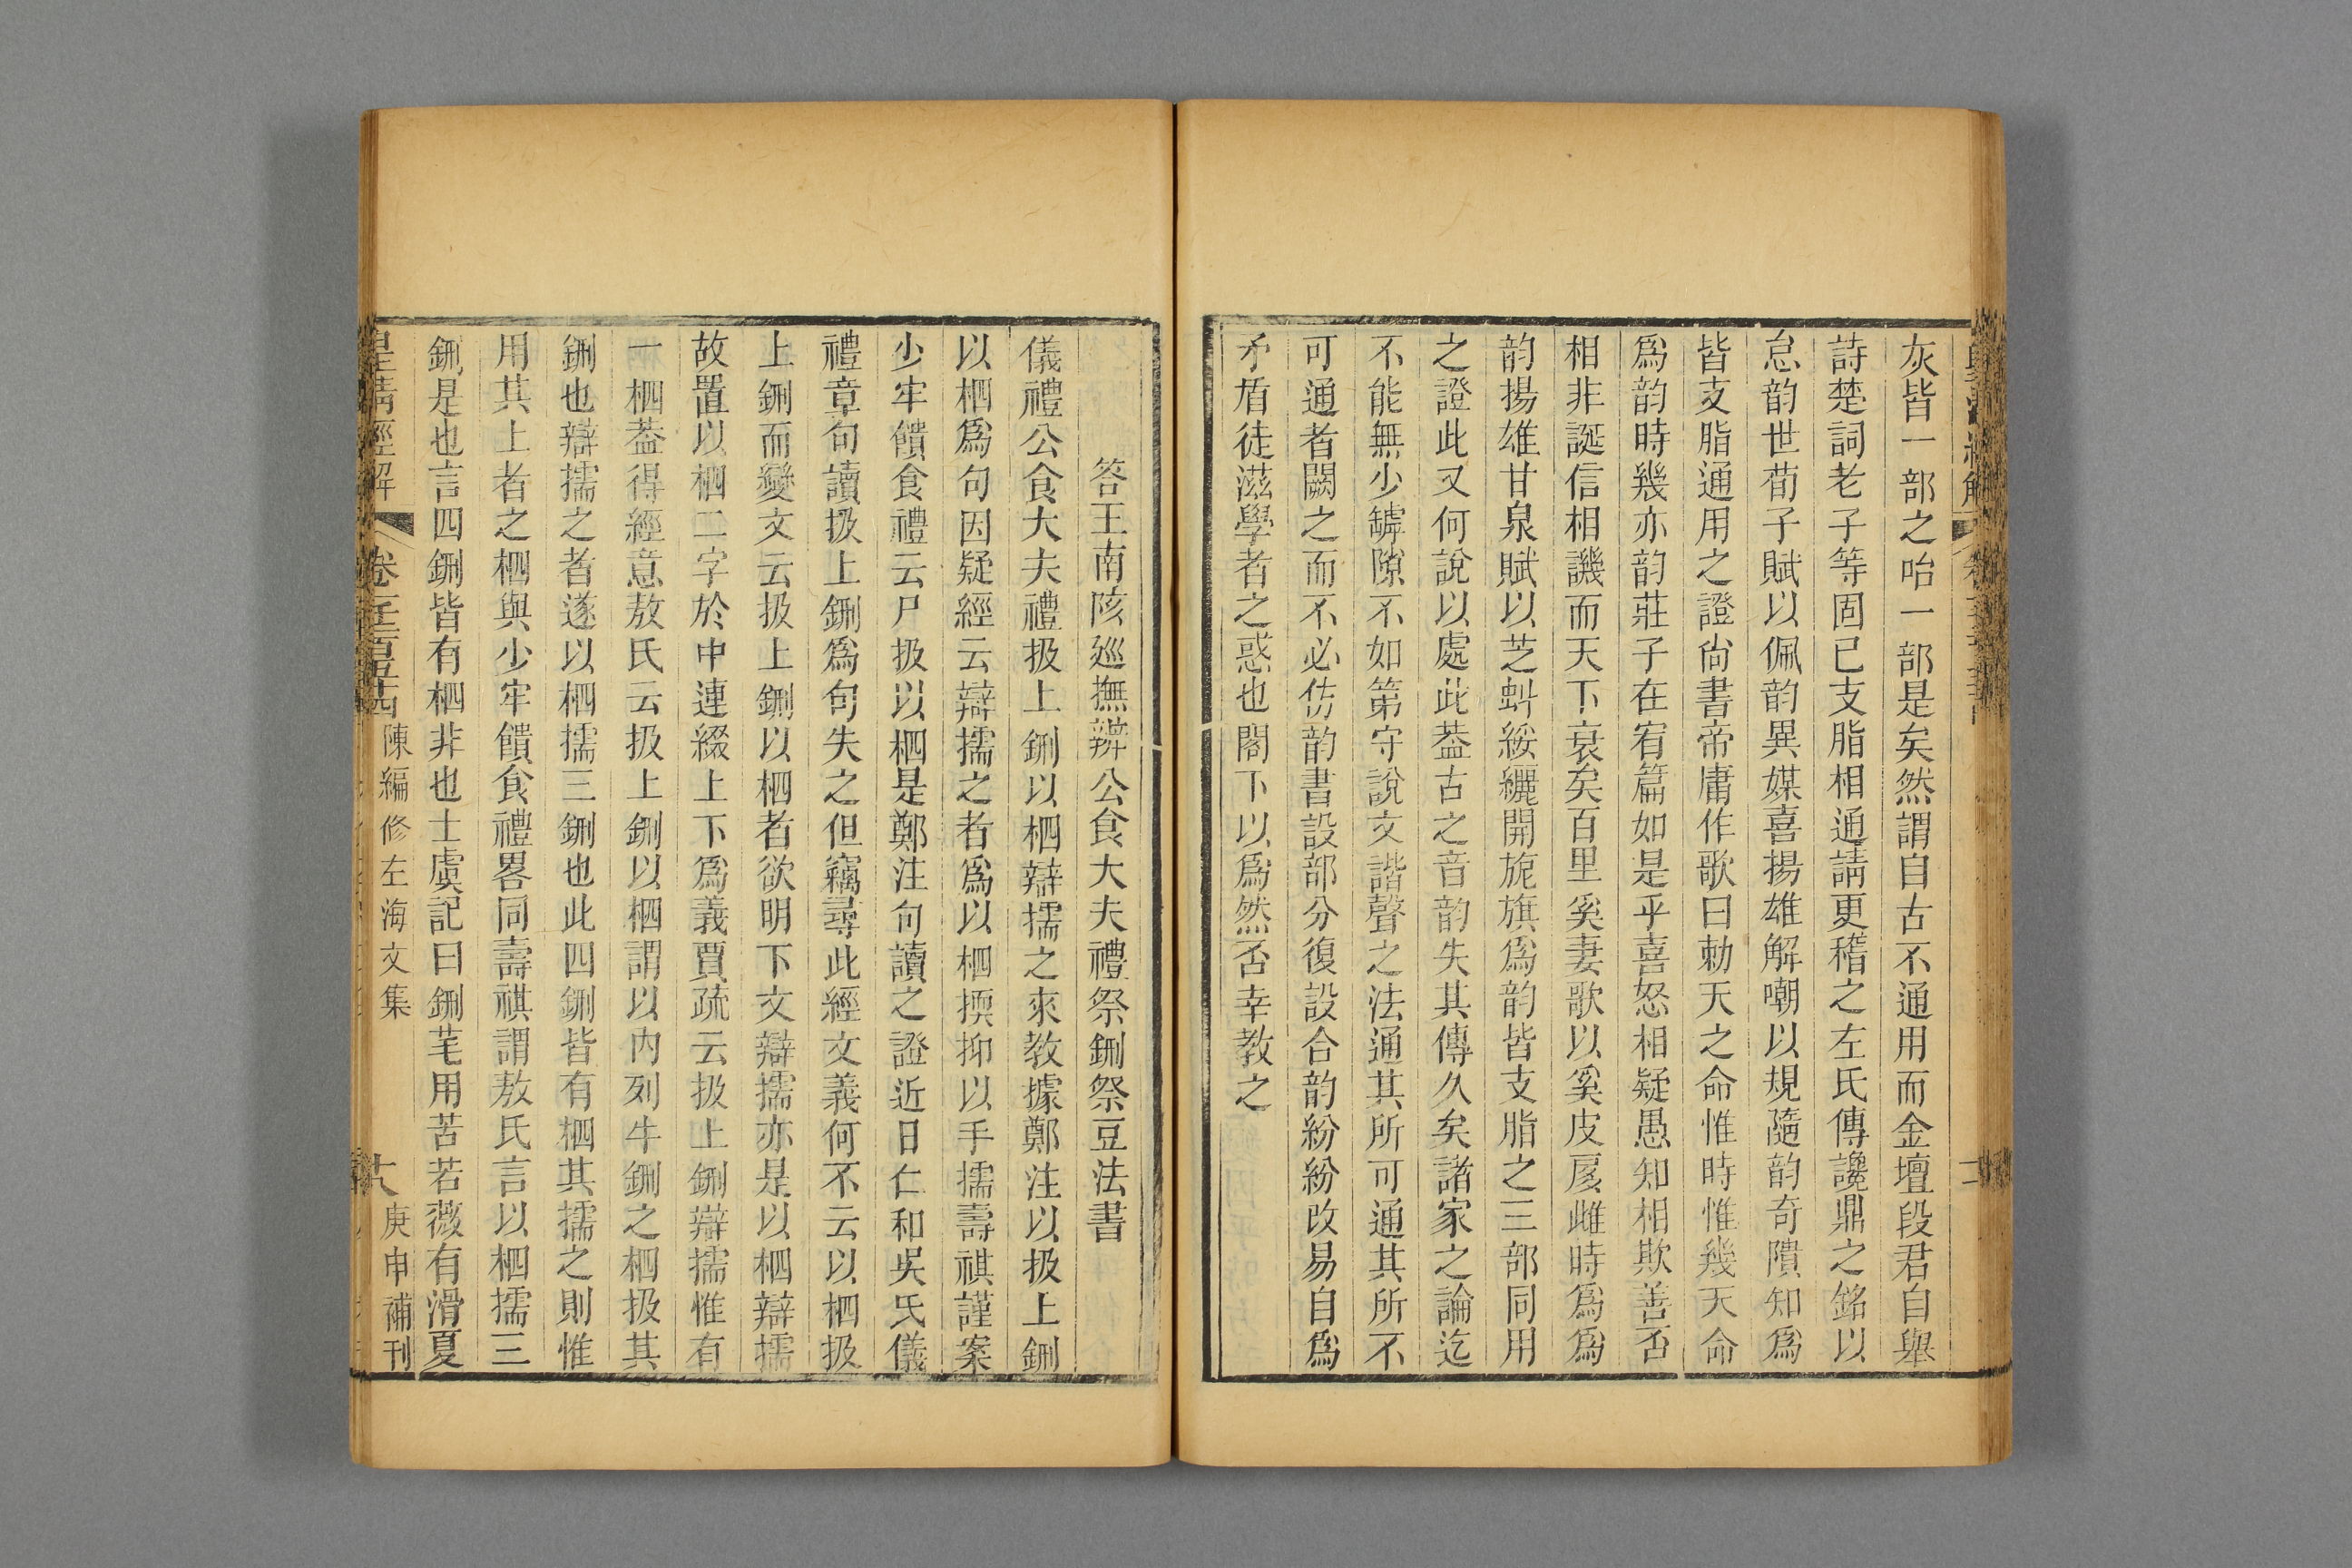 灰皆一部之咍一部是矣然謂自古不通用而金壇段君自舉
詩楚詞老子等固已支脂相通請更稽之左氏傳讒鼎之銘以
怠韵世荀子賦以佩韵異媒喜揚雄解嘲以規隨韵奇隤知爲
皆支脂通用之證尙書帝庸作歌曰勅天之命惟時惟幾天命
爲韵時幾亦韵莊子在宥篇如是乎喜怒相疑愚知相欺善否
相非誕信相譏而天下衰矣百里奚妻歌以奚皮扊雌時爲爲
韵揚雄甘泉賦以芝蚪綏纚開旎旗爲韵皆支脂之三部同用
之證此又何說以處此葢古之音韵失其傳久矣諸家之論迄
不能無少罅隙不如第守說文諧聲之法通其所可通其所不
可通者闕之而不必仿韵書設部分復設合韵紛紛改易自爲
矛盾徒滋學者之惑也閣下以爲然否幸教之
答王南陔廵撫辨公食大夫禮祭鉶祭豆法書
儀禮公食大夫禮扱上鉶以柶辯擩之來教據鄭注以扱上鉶
以柶爲句因疑經云辯擩之者爲以柶㨎抑以手擩壽祺謹案
少牢饋食禮云尸扱以柶是鄭注句讀之證近日仁和吳氏儀
禮章句讀扱上鉶爲句失之但竊尋此經文義何不云以柶扱
上鉶而變文云扱上鉶以柶者欲明下文辯擩亦是以柶辯擩
故置以柶二字於中連綴上下爲義賈疏云扱上鉶辯擩惟有
一柶葢得經意敖氏云扱上鉶以柶謂以內列牛鉶之柶扱其
鉶也辯擩之者遂以柶擩三鉶也此四鉶皆有柶其擩之則惟
用其上者之柶與少牢饋食禮畧同壽祺謂敖氏言以柶擩三
鉶是也言四鉶皆有柶非也士虞記曰鉶芼用苦若薇有滑夏
皇清經解 卷一千二百五十四 陳編修左海文集 十八 庚申補刊